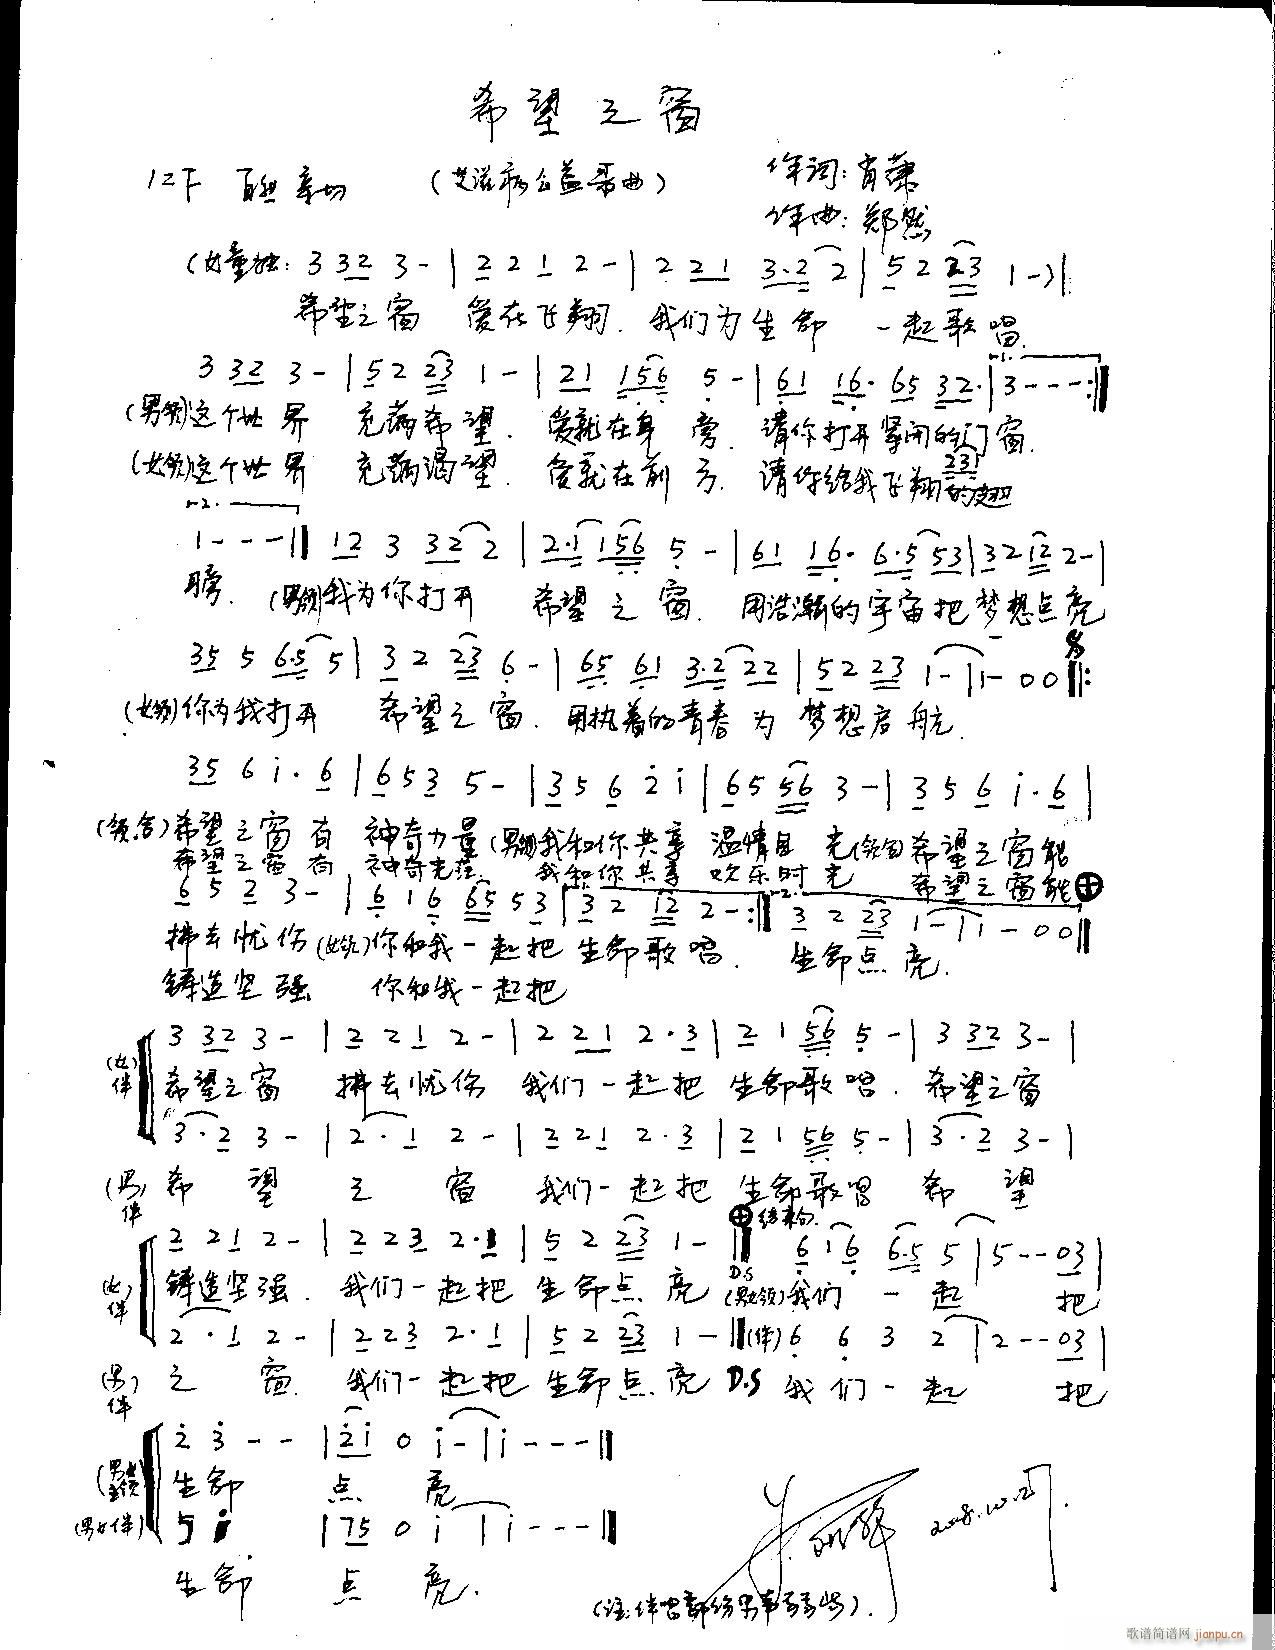 希望之窗
1=F 自然 亲切 (艾滋病公益歌曲) 作词:肖萧
作曲:郑然
(女童独: 3 32 3 - | 2 2 1 2 - | 2 2 1 3·2 2 | 5 2 23 1 -) |
希望之窗 爱在飞翔. 我们为生命 一起歌唱.
3 32 3 - | 5 2 23 1 - | 21 156 5 - | 61 16· 65 32· | 3 - - - :||
(男领)这个世界 充满希望. 爱就在身旁. 请你打开紧闭的门窗.
(女领)这个世界 充满渴望. 爱就在前方. 请你给我飞翔的翅
231
1 - - - || 12 3 32 2 | 2·1 156 5 - | 61 16· 6·5 53 | 32 12 2 - |
膀. (男领)我为你打开 希望之窗. 用浩瀚的宇宙把梦想点亮
35 5 6·5 5 | 3 2 23 6 - | 65 61 3·2 22 | 5 2 23 1 - | 1 - 0 0 ||:
(女领)你为我打开 希望之窗. 用执着的青春为梦想启航.
35 6 i· 6 | 6 5 3 5 - | 3 5 6 2 i | 65 56 3 - | 3 5 6 i· 6 |
(领合)希望之窗有 神奇力量 (男领)我和你共享 温情目光 (领合)希望之窗能
希望之窗有 神奇光芒. 我和你共享 欢乐时光 希望之窗能
6 5 2 3 - | 6 1 6 65 5 3 | 3 2 12 2 - :|| 3 2 23 1 - | 1 - 0 0 ||
拂去忧伤 (女领)你和我一起把 生命歌唱. 生命点亮.
铸造坚强 你和我一起把
(女伴) 3 32 3 - | 2 2 1 2 - | 2 2 1 2·3 | 2 1 56 5 - | 3 32 3 - |
希望之窗 拂去忧伤 我们一起把 生命歌唱. 希望之窗
3·2 3 - | 2·1 2 - | 2 2 1 2·3 | 2 1 56 5 - | 3·2 3 - |
(男伴) 希望 之窗 我们一起把 生命歌唱 希望
⊕结束句.
2 2 1 2 - | 2 2 3 2·1 | 5 2 23 1 - || 6 1 6 6·5 5 | 5 - - 03 |
(女伴) 铸造坚强. 我们一起把 生命点亮 D.S (男女领)我们一起 把
2·1 2 - | 2 2 3 2·1 | 5 2 23 1 - || (伴) 6 6 3 2 | 2 - - 03 |
(男伴) 之窗. 我们一起把 生命点亮 D.S 我们一起 把
2 3 - - | 2i 0 i - | i - - - ||
生命 点亮
(男女伴) 5 i | 75 0 i | i - - - ||
生命 点亮.
2008.10.27.
歌谱简谱网 jianpu.cn